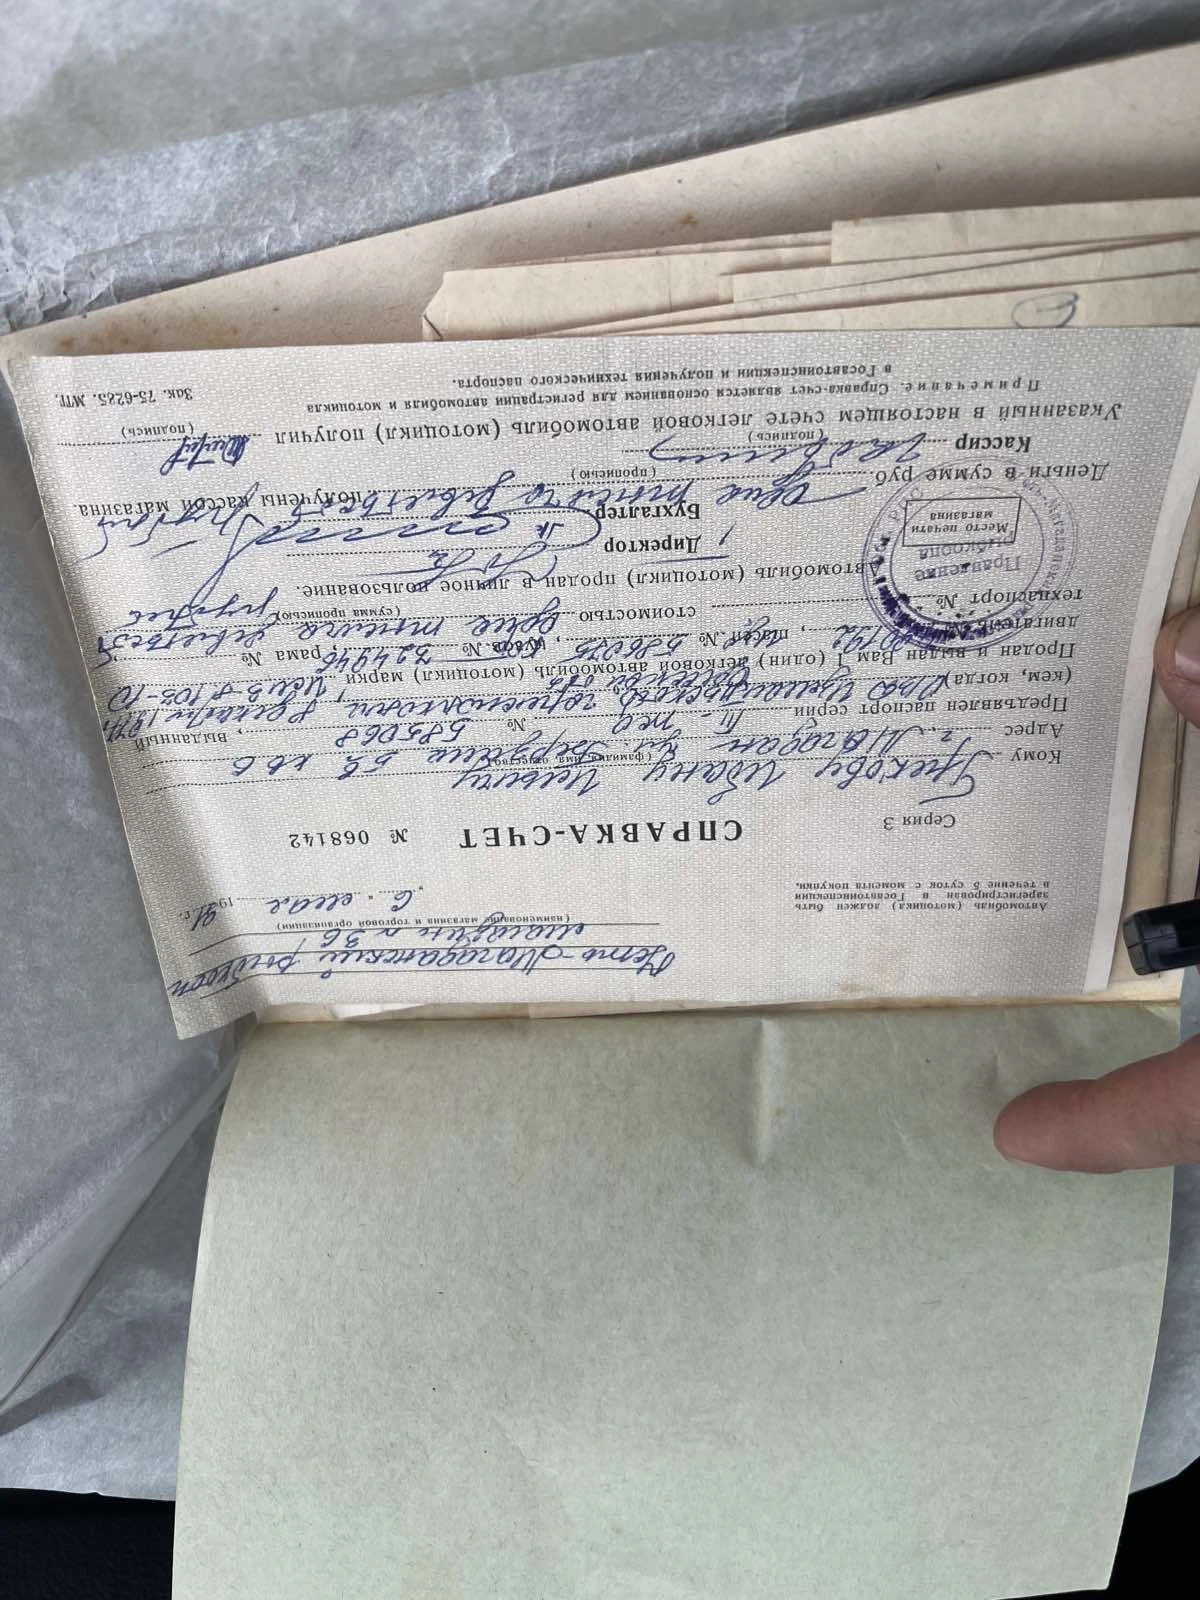 Усть-Магаданский рыбкооп
магазин № 36
(наименование магазина и торговой организации)
„ 6 “ мая 1991 г.
Автомобиль (мотоцикл) должен быть
зарегистрирован в Госавтоинспекции
в течение 5 суток с момента покупки.
Серия З
СПРАВКА-СЧЕТ № 068142
Кому Грекову Ивану Ильичу
(фамилия, имя, отчество)
Адрес г. Магадан ул. Берзина 5 кв 6
Предъявлен паспорт серии № 585068, выданный
(кем, когда) ОВД
Продан и выдан Вам 1 (один) легковой автомобиль (мотоцикл) марки
двигатель № шасси № 586075, кузов № 324946 рама №
техпаспорт № стоимостью одна тысяча девятьсот
(сумма прописью)
Автомобиль (мотоцикл) продан в личное пользование.
Директор
Бухгалтер
Место печати
магазина
Правление
рыбкоопа
Деньги в сумме руб. одна тысяча девятьсот получены кассой магазина.
(прописью)
Кассир
(подпись)
Указанный в настоящем счете легковой автомобиль (мотоцикл) получил
(подпись)
Примечание. Справка-счет является основанием для регистрации автомобиля и мотоцикла
в Госавтоинспекции и получения технического паспорта.
Зак. 75-6285. МТГ.